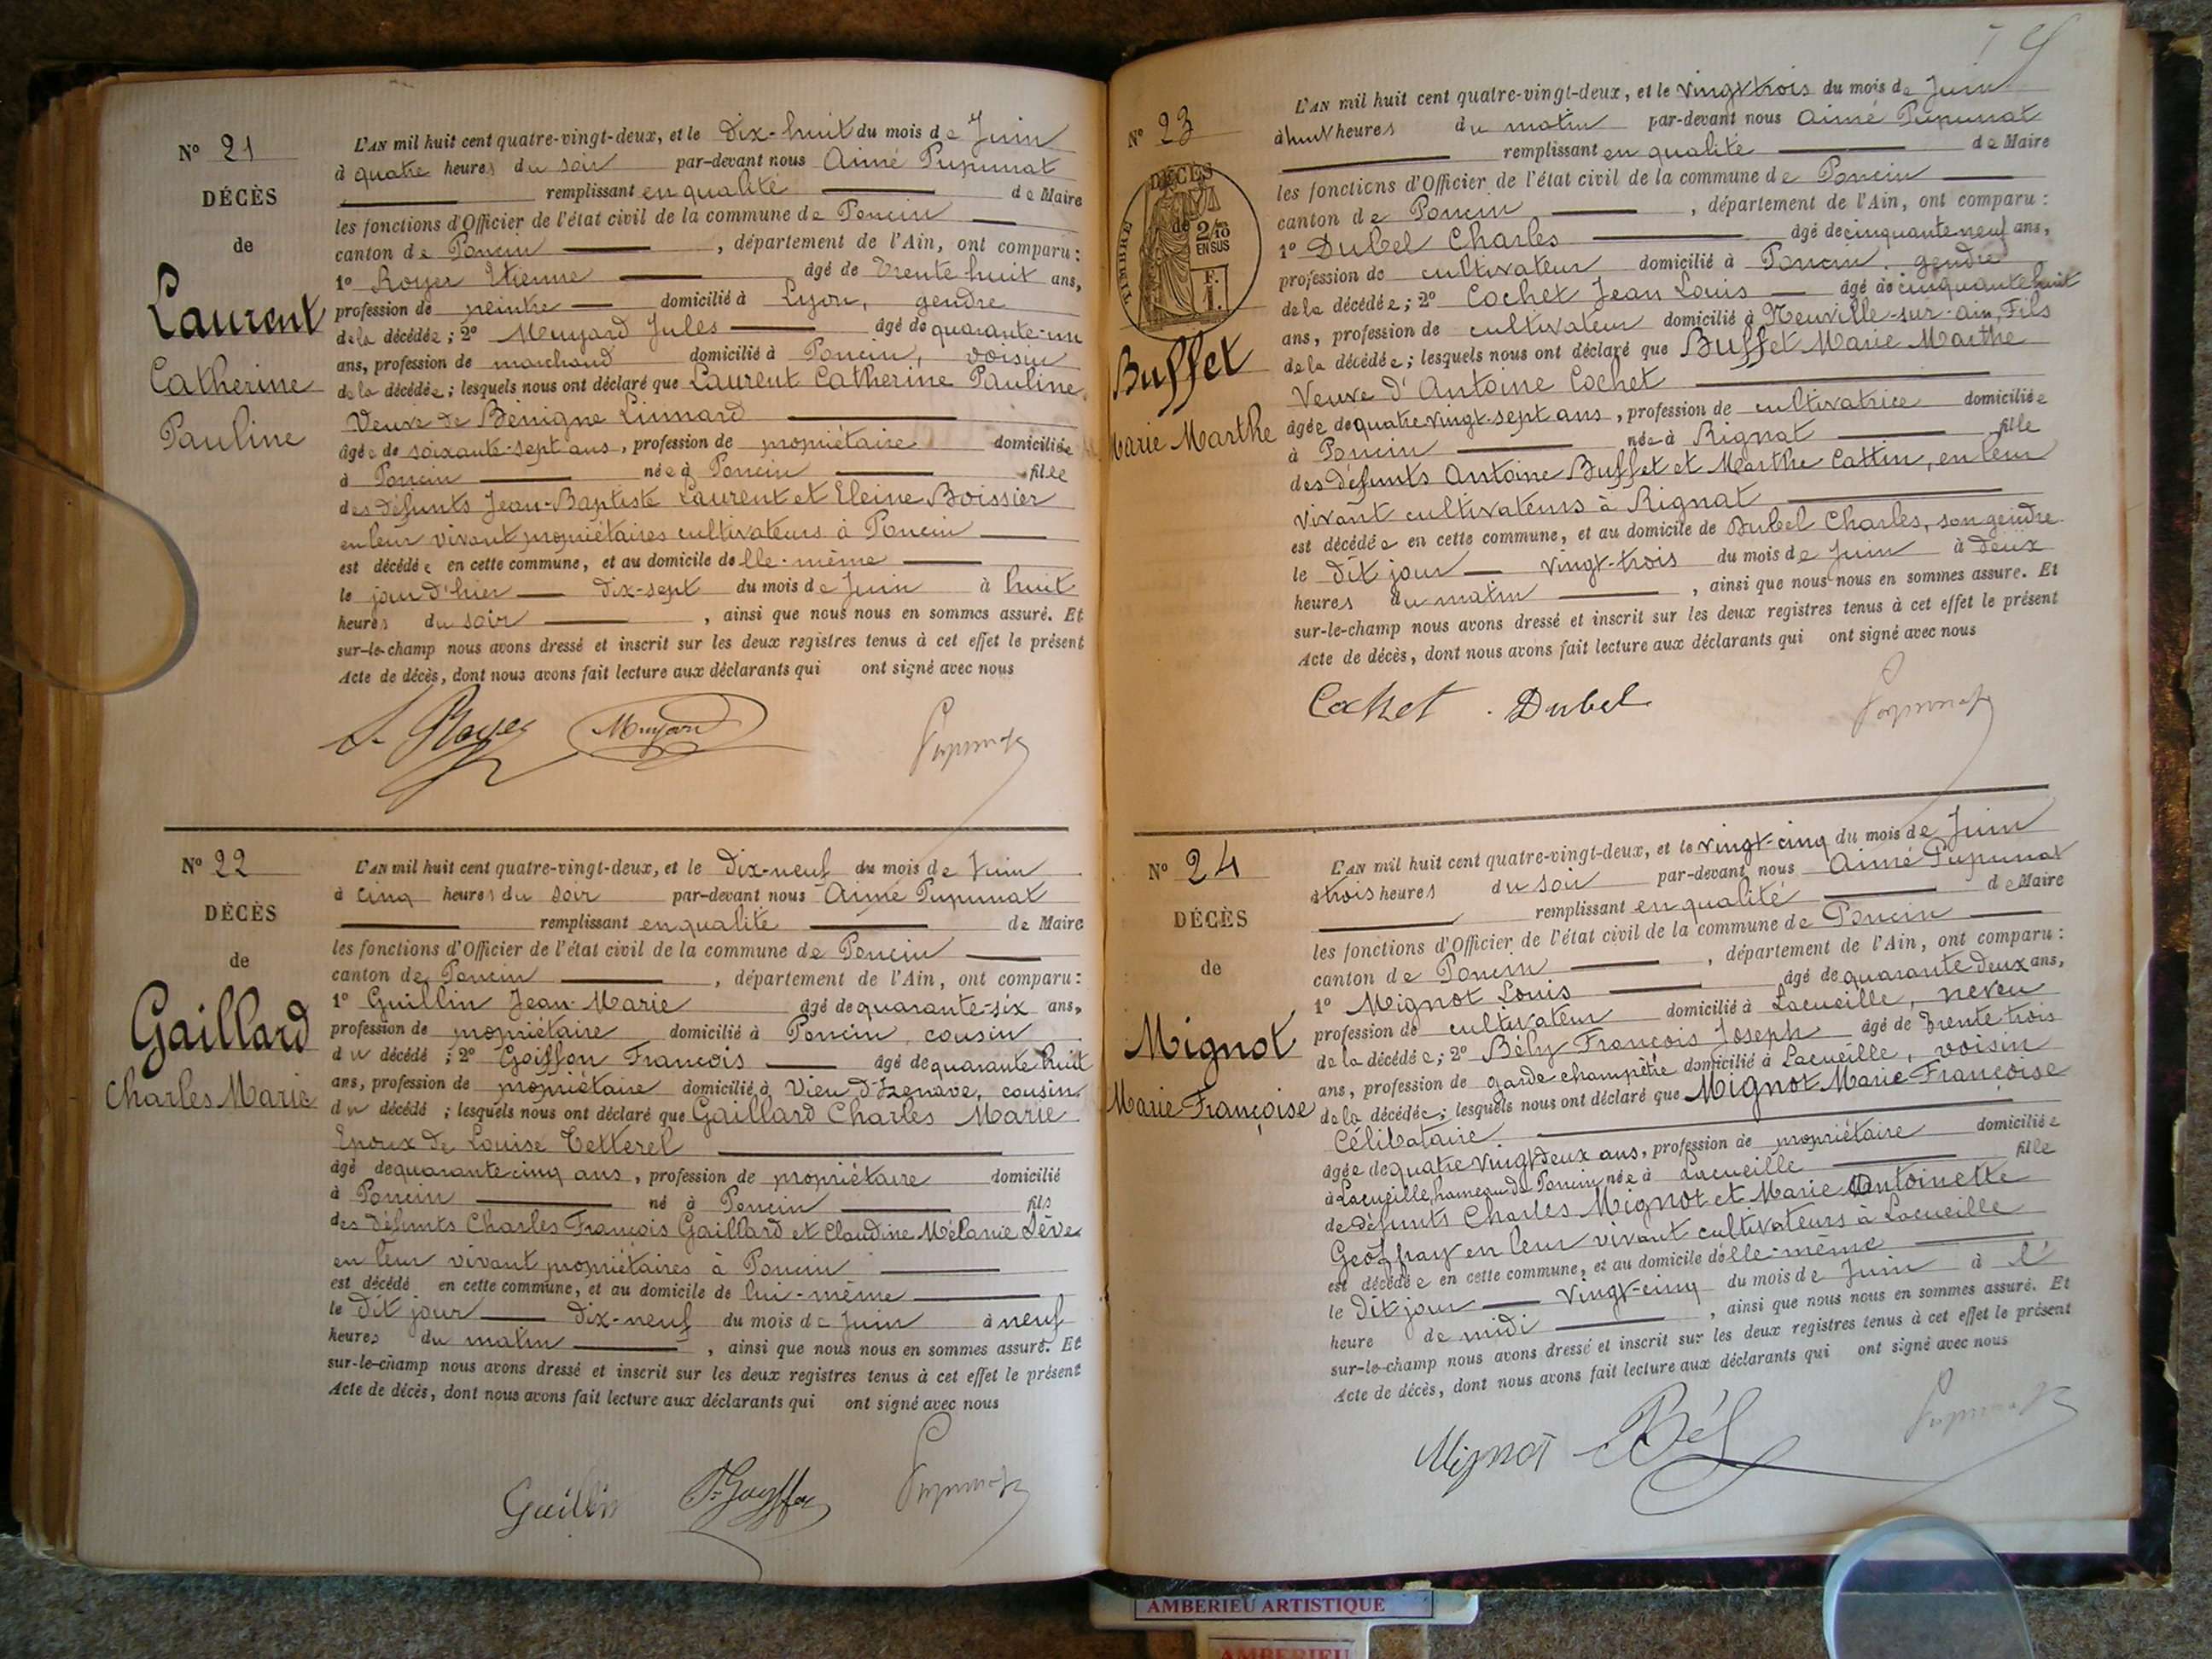 N° 21
DÉCÈS
de
Laurent
Catherine
Pauline
L'AN mil huit cent quatre-vingt-deux, et le Dix-huit du mois de Juin
à quatre heures du soir par-devant nous Aimé Pupunat
remplissant en qualité de Maire
les fonctions d'Officier de l'état civil de la commune de Poncin
canton de Poncin , département de l'Ain, ont comparu :
1° Royer Etienne âgé de Trente-huit ans,
profession de peintre domicilié à Lyon, gendre
de la décédée ; 2° Mugard Jules âgé de quarante-un
ans, profession de marchand domicilié à Poncin, voisin
de la décédée ; lesquels nous ont déclaré que Laurent Catherine Pauline
Veuve de Bénigne Linnard
âgée de soixante-sept ans, profession de propriétaire domiciliée
à Poncin née à Poncin fille
des défunts Jean-Baptiste Laurent et Eleine Boissier
en leur vivant propriétaires cultivateurs à Poncin
est décédée en cette commune, et au domicile de lle-même
le jour d'hier dix-sept du mois de Juin à huit
heures du soir , ainsi que nous nous en sommes assuré. Et
sur-le-champ nous avons dressé et inscrit sur les deux registres tenus à cet effet le présent
Acte de décès, dont nous avons fait lecture aux déclarants qui ont signé avec nous
Royer Mugard Pupunat
N° 22
DÉCÈS
de
Gaillard
Charles Marie
L'AN mil huit cent quatre-vingt-deux, et le Dix-neuf du mois de Juin
à cinq heures du soir par-devant nous Aimé Pupunat
remplissant en qualité de Maire
les fonctions d'Officier de l'état civil de la commune de Poncin
canton de Poncin , département de l'Ain, ont comparu :
1° Guillin Jean-Marie âgé de quarante-six ans,
profession de propriétaire domicilié à Poncin, cousin
du décédé ; 2° Goiffon François âgé de quarante huit
ans, profession de propriétaire domicilié à Vieu d'Izenave, cousin
du décédé ; lesquels nous ont déclaré que Gaillard Charles Marie
Epoux de Louise Tetterel
âgé de quarante cinq ans, profession de propriétaire domicilié
à Poncin né à Poncin fils
des défunts Charles François Gaillard et Claudine Mélanie Sève
en leur vivant propriétaires à Poncin
est décédé en cette commune, et au domicile de lui-même
le dit jour dix-neuf du mois de Juin à neuf
heures du matin , ainsi que nous nous en sommes assuré. Et
sur-le-champ nous avons dressé et inscrit sur les deux registres tenus à cet effet le présent
Acte de décès, dont nous avons fait lecture aux déclarants qui ont signé avec nous
Guillin Pupunat
N° 23
DÉCÈS
de
TIMBRE
2/10
EN SUS
F.
1.
Buffet
Marie Marthe
L'AN mil huit cent quatre-vingt-deux, et le vingt trois du mois de Juin
à huit heures du matin par-devant nous Aimé Pupunat
remplissant en qualité de Maire
les fonctions d'Officier de l'état civil de la commune de Poncin
canton de Poncin , département de l'Ain, ont comparu :
1° Dubel Charles âgé de cinquante neuf ans,
profession de cultivateur domicilié à Poncin, gendre
de la décédée ; 2° Cochet Jean Louis âgé de cinquante huit
ans, profession de cultivateur domicilié à Neuville-sur-ain, Fils
de la décédée ; lesquels nous ont déclaré que Buffet Marie Marthe
Veuve d'Antoine Cochet
âgée de quatre vingt-sept ans, profession de cultivatrice domiciliée
à Poncin née à Rignat fille
des défunts Antoine Buffet et Marthe Cattin, en leur
vivant cultivateurs à Rignat
est décédée en cette commune, et au domicile de Dubel Charles, son gendre
le dit jour vingt-trois du mois de Juin à deux
heures du matin , ainsi que nous nous en sommes assuré. Et
sur-le-champ nous avons dressé et inscrit sur les deux registres tenus à cet effet le présent
Acte de décès, dont nous avons fait lecture aux déclarants qui ont signé avec nous
Cochet . Dubel Pupunat
N° 24
DÉCÈS
de
Mignot
Marie-Françoise
L'AN mil huit cent quatre-vingt-deux, et le vingt-cinq du mois de Juin
à trois heures du soir par-devant nous Aimé Pupunat
remplissant en qualité de Maire
les fonctions d'Officier de l'état civil de la commune de Poncin
canton de Poncin , département de l'Ain, ont comparu :
1° Mignot Louis âgé de quarante deux ans,
profession de cultivateur domicilié à Lacueille, neveu
de la décédée ; 2° Bély François Joseph âgé de Trente trois
ans, profession de garde champêtre domicilié à Lacueille, voisin
de la décédée ; lesquels nous ont déclaré que Mignot Marie-Françoise
Célibataire
âgée de quatre vingt deux ans, profession de propriétaire domiciliée
à Lacueille, hameau de Poncin née à Lacueille fille
de défunts Charles Mignot et Marie Antoinette
Geoffray en leur vivant cultivateurs à Lacueille
est décédée en cette commune, et au domicile de lle-même
le dit jour vingt-cinq du mois de Juin à l'
heure de midi , ainsi que nous nous en sommes assuré. Et
sur-le-champ nous avons dressé et inscrit sur les deux registres tenus à cet effet le présent
Acte de décès, dont nous avons fait lecture aux déclarants qui ont signé avec nous
Mignot Bély Pupunat
AMBERIEU ARTISTIQUE
AMBERIEU